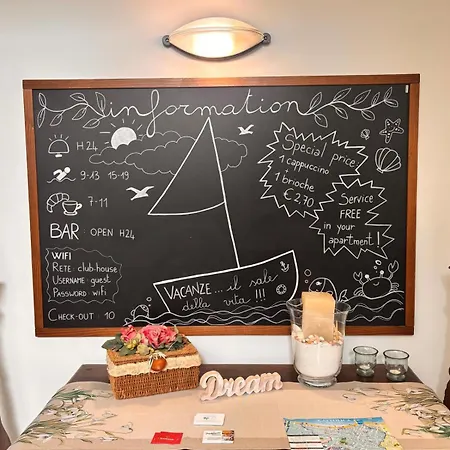 information
H24
9-13 15-19
7-11
BAR OPEN H24
WIFI
RETE: club-house
USERNAME: guest
PASSWORD: wifi
CHECK-OUT 10
VACANZE... il sale
della vita !!!
Special price
1 cappuccino
+
1 brioche
€ 2,70
Service
FREE
in your
apartment!
Dream